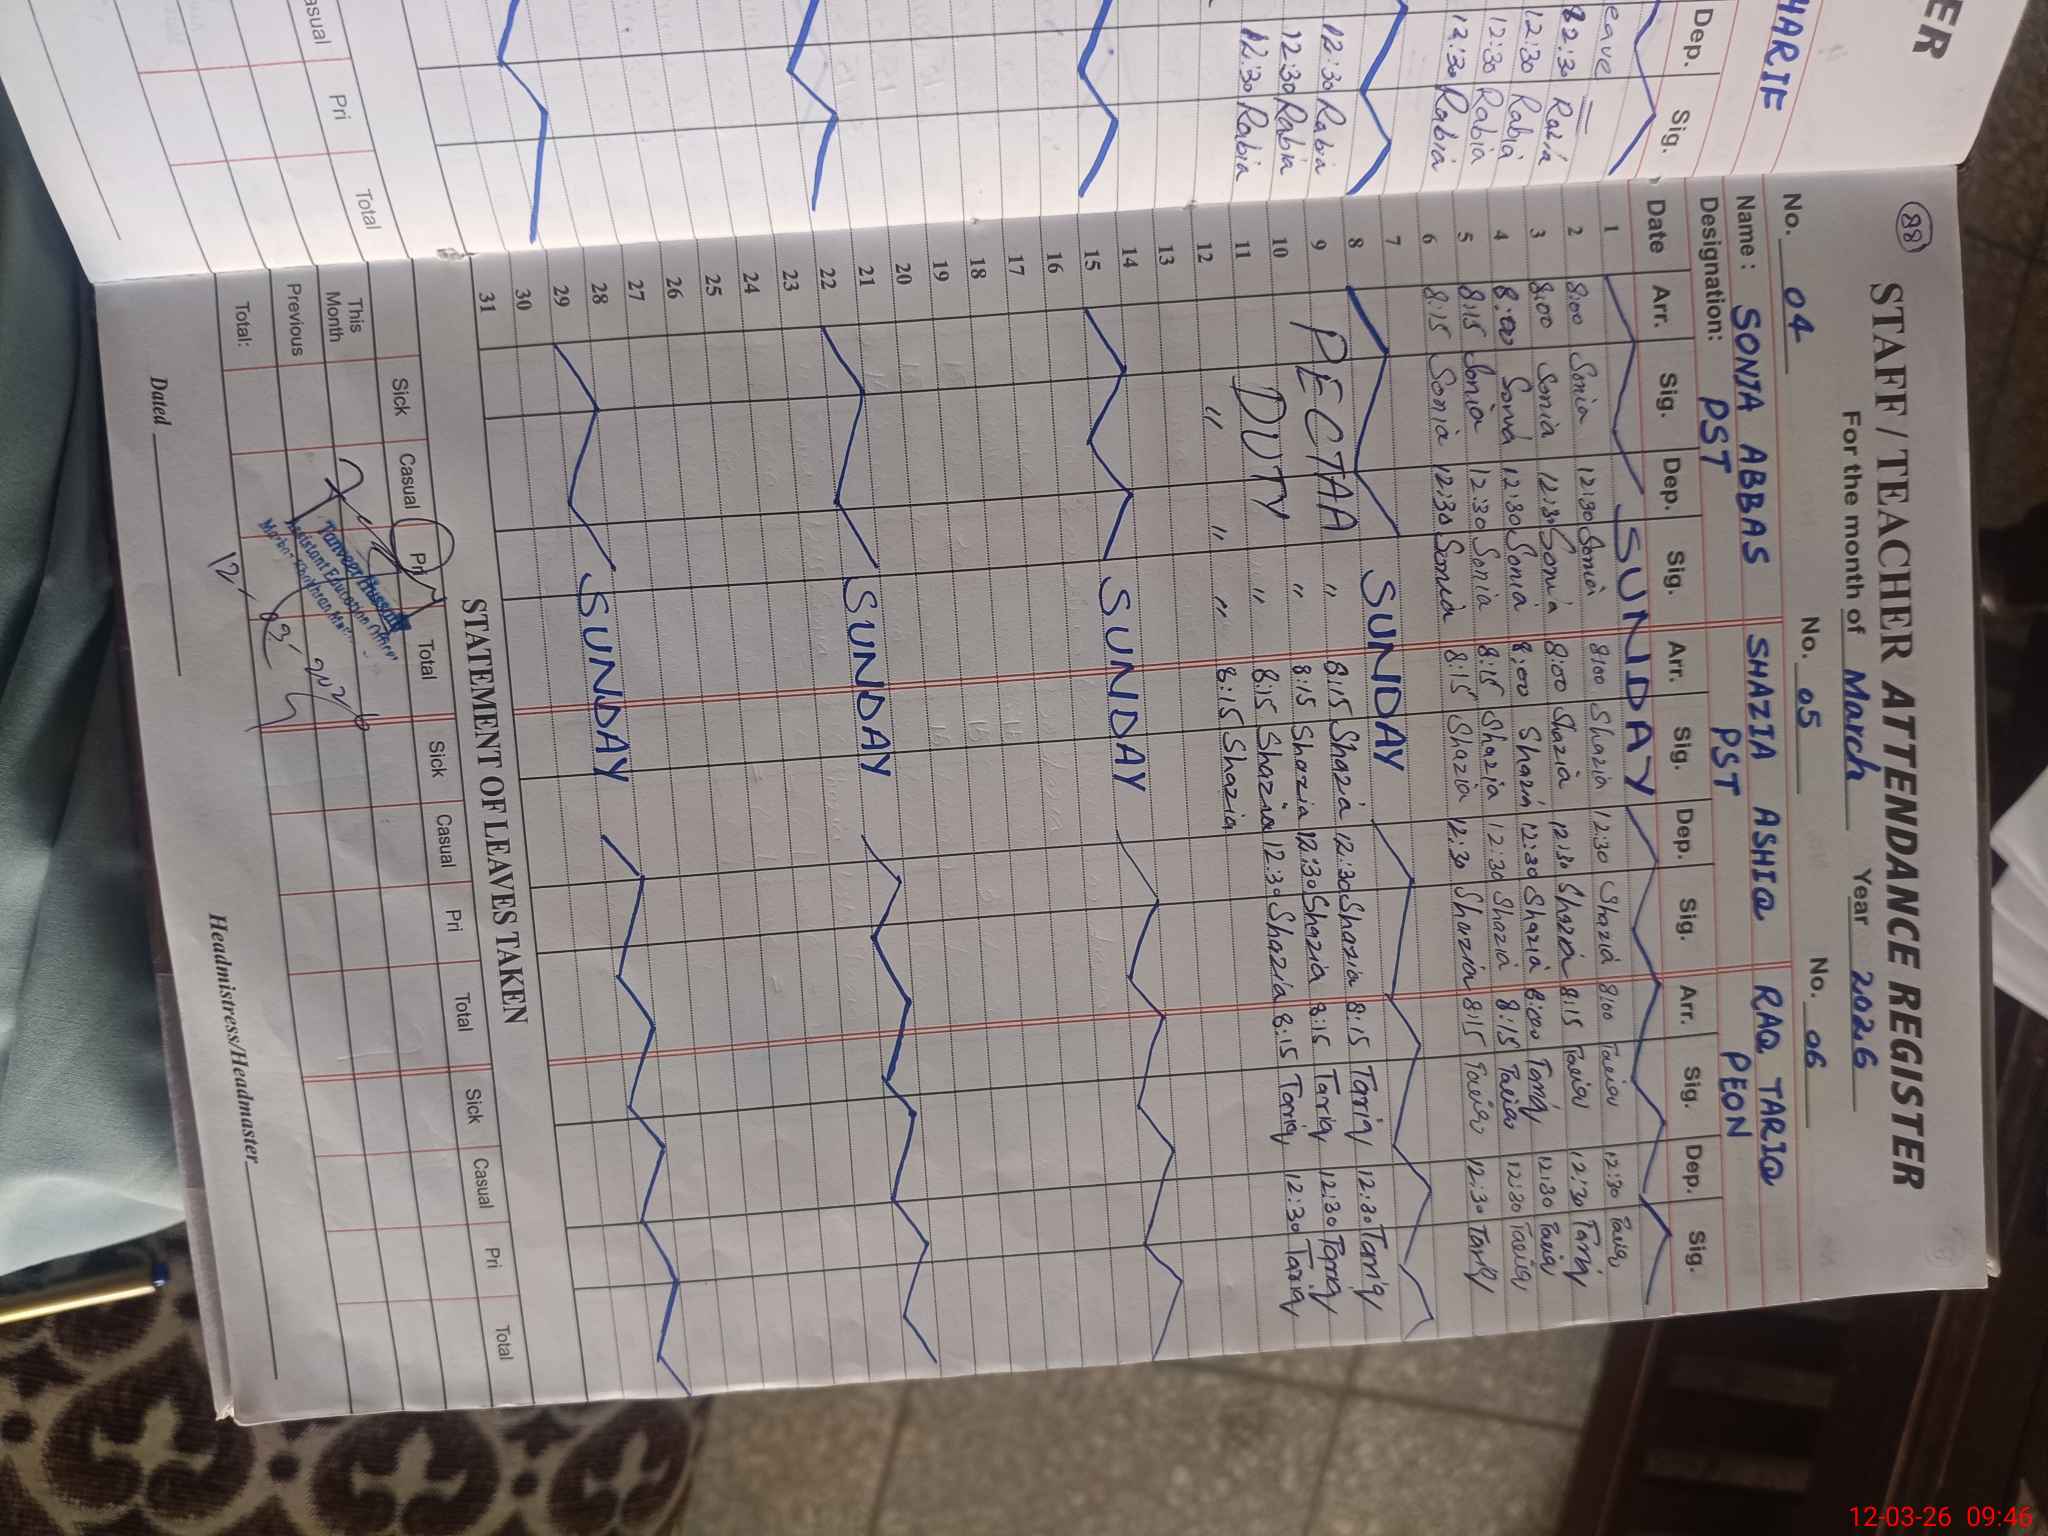 ER
HARIF
Dep. Sig.
eave
12:30 Rabia
12:30 Rabia
12:30 Rabia
12:30 Rabia
12:30 Rabia
12:30 Rabia
12:30 Rabia
asual Pri Total
88
STAFF / TEACHER ATTENDANCE REGISTER
For the month of March Year 2026
No. 04 No. 05 No. 06
Name: SONIA ABBAS SHAZIA ASHIQ RAO TARIQ
Designation: PST PST PEON
Date Arr. Sig. Dep. Sig. Arr. Sig. Dep. Sig. Arr. Sig. Dep. Sig.
1 SUNDAY
2 8:00 Sonia 12:30 Sonia 8:00 Shazia 12:30 Shazia 8:00 Tariq 12:30 Tariq
3 8:00 Sonia 12:30 Sonia 8:00 Shazia 12:30 Shazia 8:15 Tariq 12:30 Tariq
4 8:00 Sonia 12:30 Sonia 8:00 Shazia 12:30 Shazia 8:00 Tariq 12:30 Tariq
5 8:15 Sonia 12:30 Sonia 8:15 Shazia 12:30 Shazia 8:15 Tariq 12:30 Tariq
6 8:15 Sonia 12:30 Sonia 8:15 Shazia 12:30 Shazia 8:15 Tariq 12:30 Tariq
7
8 SUNDAY
9 PECTAA " 8:15 Shazia 12:30 Shazia 8:15 Tariq 12:30 Tariq
10 " 8:15 Shazia 12:30 Shazia 8:15 Tariq 12:30 Tariq
11 DUTY " 8:15 Shazia 12:30 Shazia 8:15 Tariq 12:30 Tariq
12 " " " 8:15 Shazia
13
14
15 SUNDAY
16
17
18
19
20
21
22 SUNDAY
23
24
25
26
27
28
29 SUNDAY
30
31
STATEMENT OF LEAVES TAKEN
Sick Casual Pri Total Sick Casual Pri Total Sick Casual Pri Total
This Month
Previous
Total:
Tanveer Hussain
Assistant Education Officer
Dated Headmistress/Headmaster
12-03-26 09:46